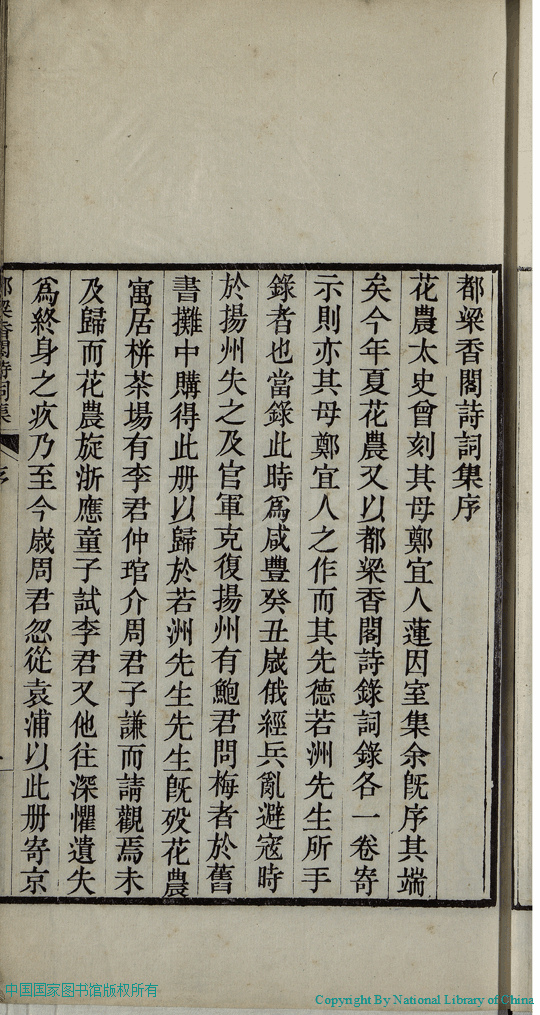 都梁香閣詩詞集序
花農太史曾刻其母鄭宜人蓮因室集余旣序其端
矣今年夏花農又以都梁香閣詩錄詞錄各一卷寄
示則亦其母鄭宜人之作而其先德若洲先生所手
錄者也當錄此時爲咸豐癸丑歲俄經兵亂避寇時
於揚州失之及官軍克復揚州有鮑君問梅者於舊
書攤中購得此册以歸於若洲先生先生旣殁花農
寓居栟茶場有李君仲琯介周君子謙而請觀焉未
及歸而花農旋浙應童子試李君又他往深懼遺失
爲終身之疚乃至今歲周君忽從袁浦以此册寄京
都梁香閣詩詞集
序
中国国家图书馆版权所有
Copyright By National Library of China